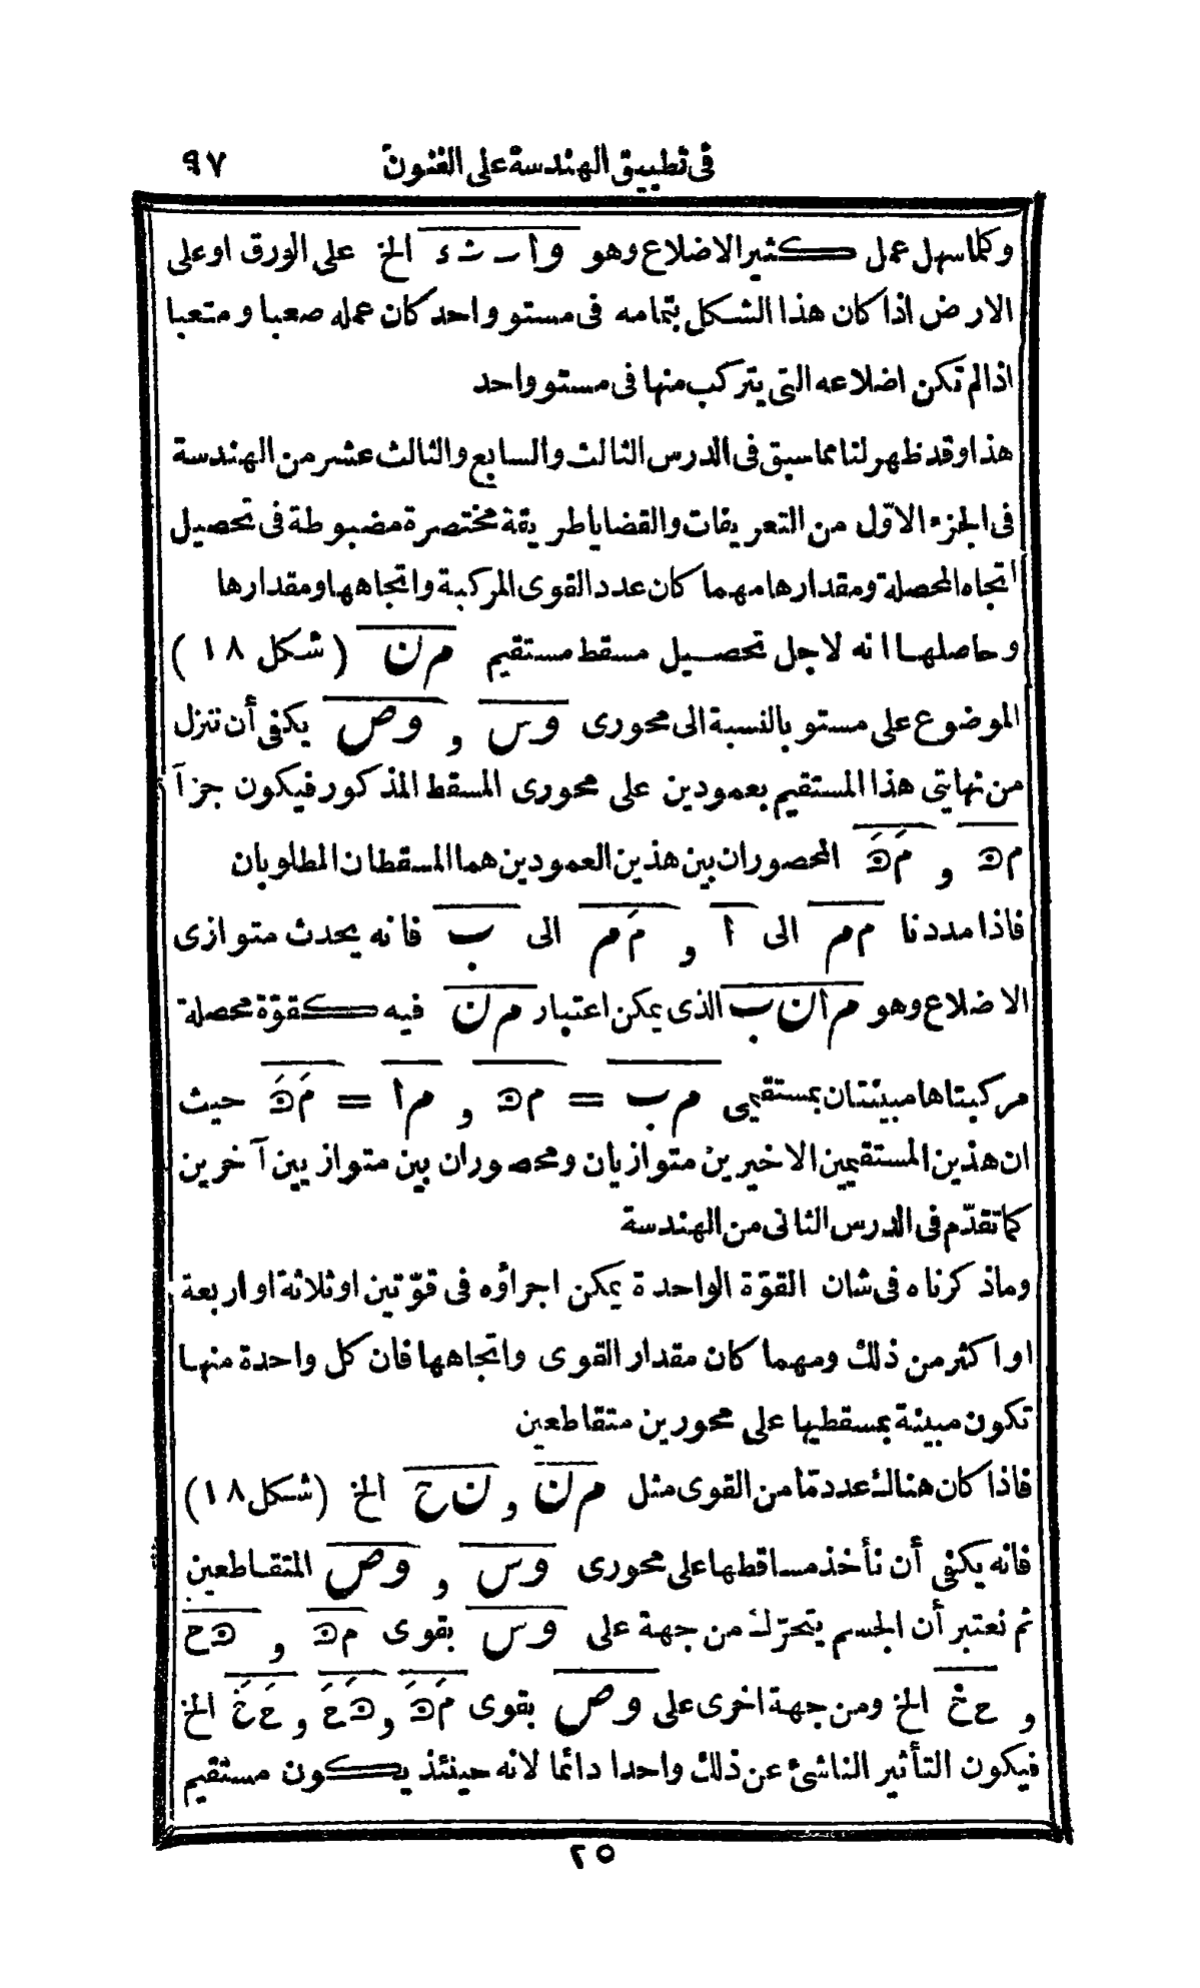 فى تطبيق الهندسة على الفنون ٩٧
وكما سهل عمل كثير الاضلاع وهو الخ على الورق او على
الارض اذا كان هذا الشكل بتمامه فى مستو واحد كان عمله صعبا ومتعبا
اذا لم تكن اضلاعه التى يتركب منها فى مستو واحد
هذا وقد ظهر لنا مما سبق فى الدرس الثالث والسابع والثالث عشر من الهندسة
فى الجزء الاوّل من التعريفات والقضايا طريقة مختصرة مضبوطة فى تحصيل
اتجاه المحصلة ومقدارها مهما كان عدد القوى المركبة واتجاهها ومقدارها
وحاصلها انه لاجل تحصيل مسقط مستقيم م ن ( شكل ١٨ )
الموضوع على مستو بالنسبة الى محورى وس و وص يكفى أن ننزل
من نهايتى هذا المستقيم بعمودين على محورى المسقط المذكور فيكون جزآ
م ه و مَ هَ المحصوران بين هذين العمودين هما المسقطان المطلوبان
فاذا مددنا م م الى ا و مَ م الى ب فانه يحدث متوازى
الاضلاع وهو م ا ن ب الذى يمكن اعتبار م ن فيه كقوّة محصلة
مركبتاها مبينتان بمستقيمى م ب = م ه و م ا = مَ هَ حيث
ان هذين المستقيمين الاخيرين متوازيان ومحصوران بين متوازيين آخرين
كما تقدّم فى الدرس الثانى من الهندسة
وما ذكرناه فى شان القوّة الواحدة يمكن اجراؤه فى قوّتين او ثلاثة او اربعة
او اكثر من ذلك ومهما كان مقدار القوى واتجاهها فان كل واحدة منها
تكون مبينة بمسقطيها على محورين متقاطعين
فاذا كان هنالك عدد مّا من القوى مثل م ن و ن ح الخ (شكل ١٨)
فانه يكفى أن نأخذ مساقطها على محورى وس و وص المتقاطعين
ثم نعتبر أن الجسم يتحرّك من جهة على وس بقوى م ه و ه ح
و ح خ الخ ومن جهة اخرى على وص بقوى مَ هَ و هَ حَ و حَ خَ الخ
فيكون التأثير الناشئ عن ذلك واحدا دائما لانه حينئذ يكون مستقيم
٢٥